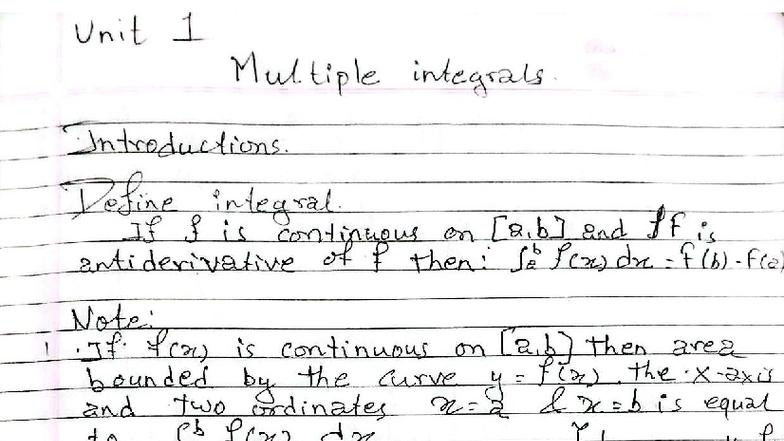 Unit 1
Multiple integrals.
Introductions.
Define integral.
If f is continuous on [a,b] and F is
antiderivative of f then: ∫ₐᵇ f(x) dx = f(b) - f(a)
Note:
1. If f(x) is continuous on [a,b] then area
bounded by the curve y = f(x), the X-axis
and two ordinates x = a & x = b is equal
to ∫ᵇ f(x) dx